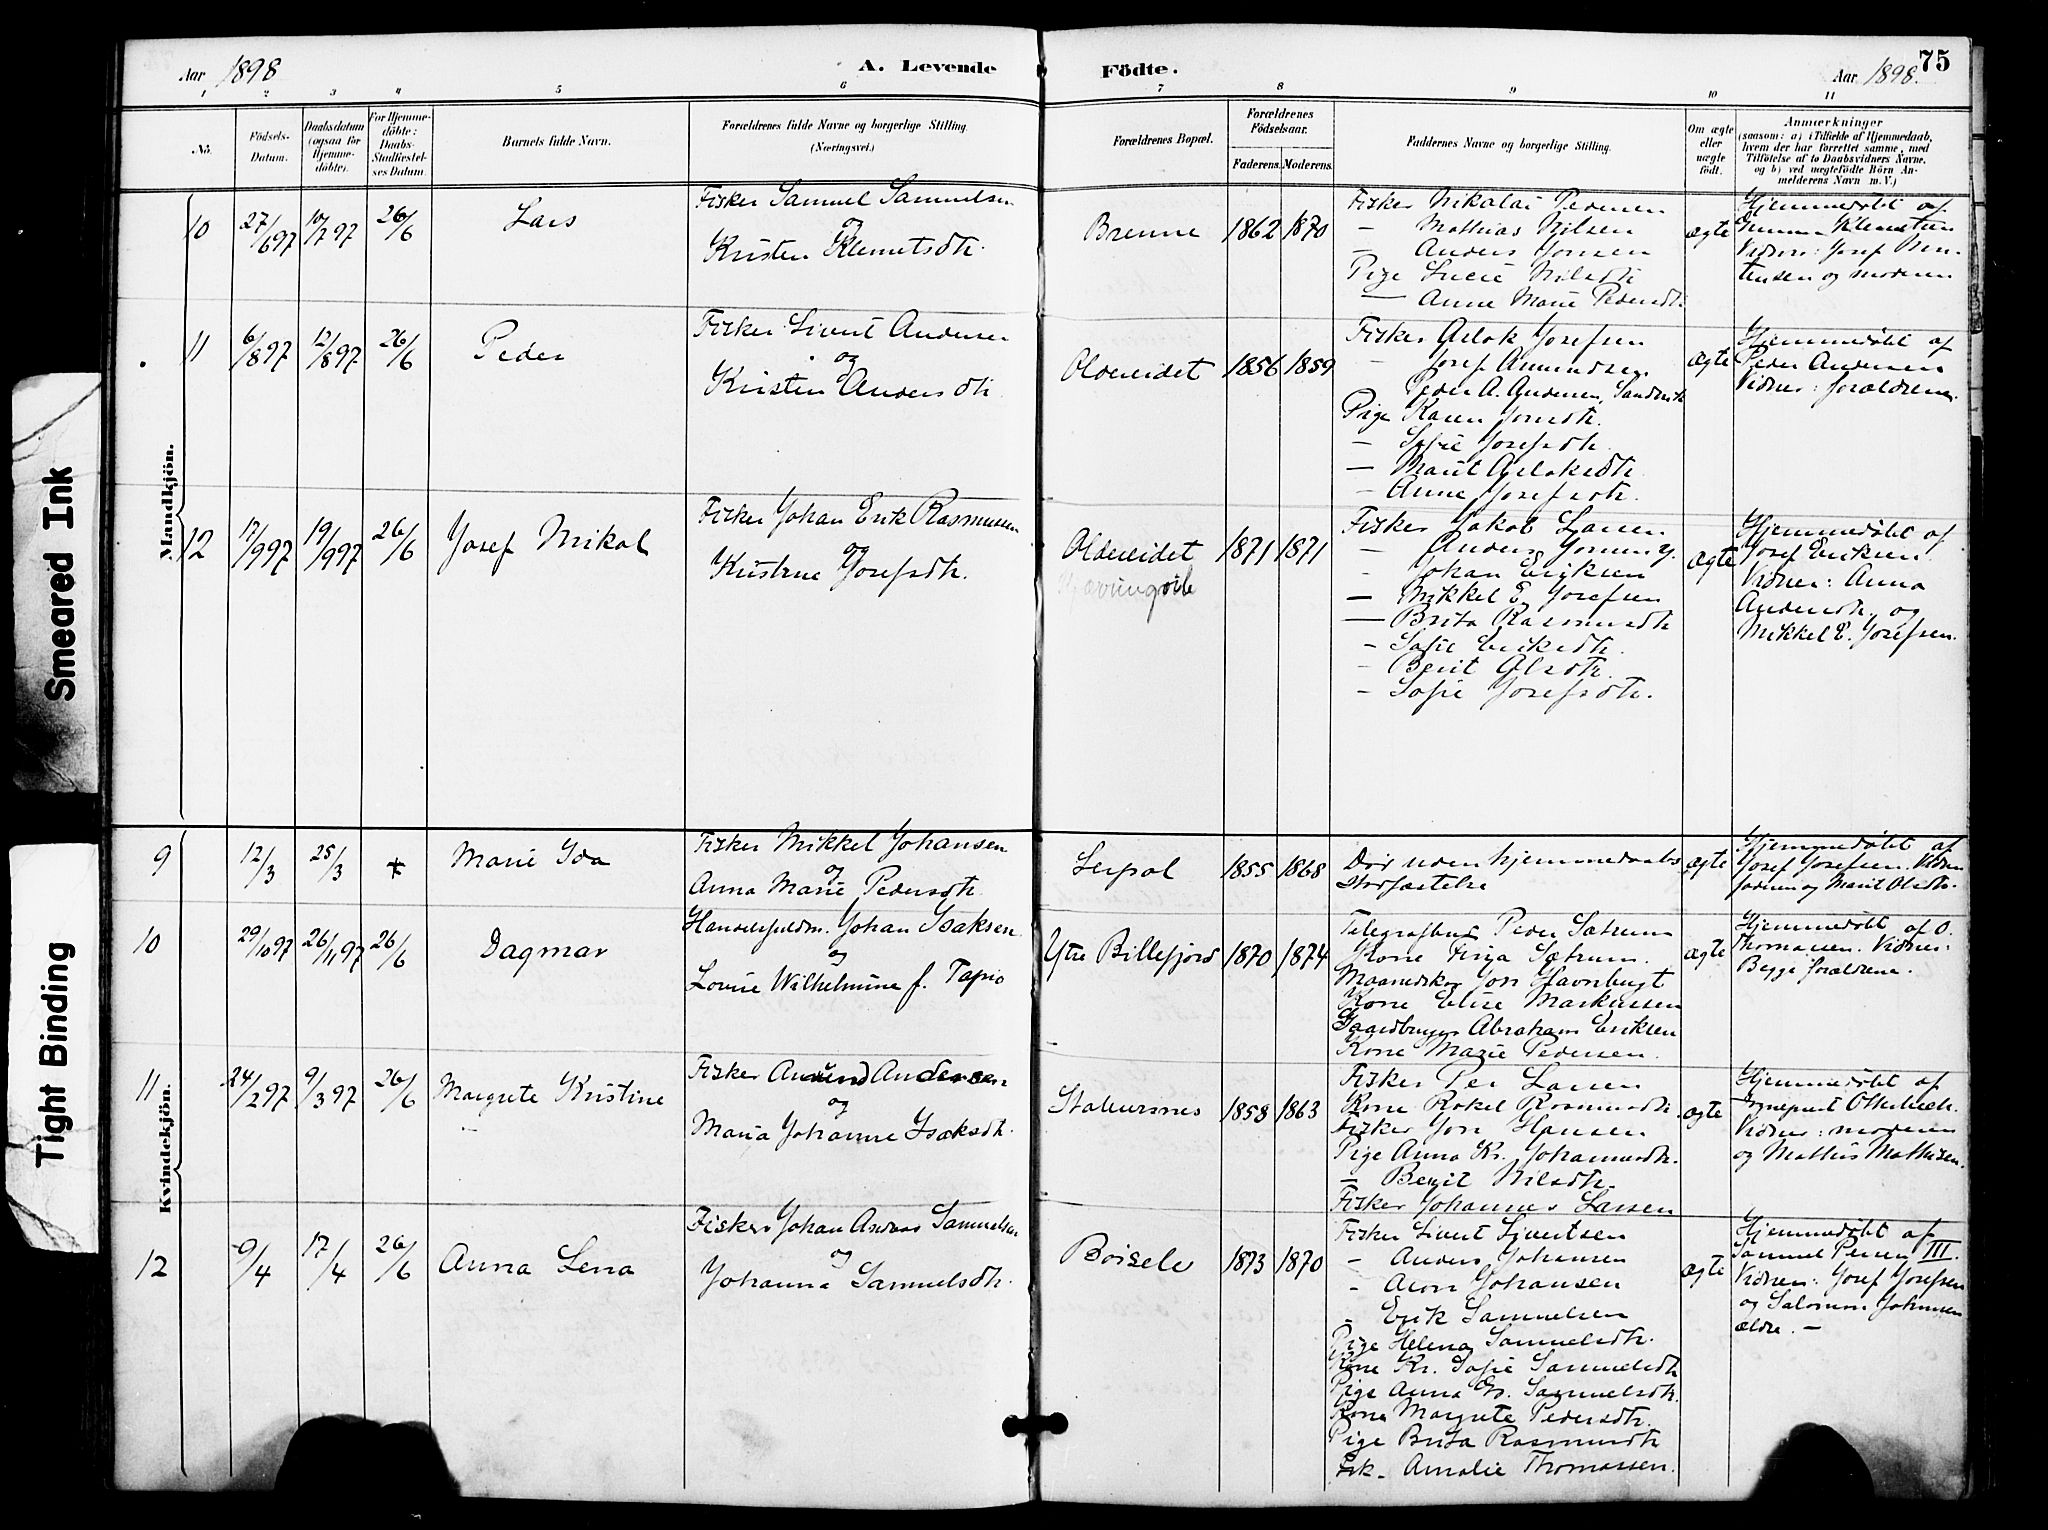 Smeared Ink
Tight Binding
Aar 1898
A. Levende
Födte.
Aar 1898.
75
1 2 3 4 5 6 7 8 9 10 11
No.
Födsels-
Datum.
Daabsdatum
(ogsaa for
Hjemme-
döbte).
For Hjemme-
döbte:
Daabs-
Stadfæstel-
ses Datum.
Barnets fulde Navn.
Forældrenes fulde Navne og borgerlige Stilling.
(Næringsvei.)
Forældrenes Bopæl.
Forældrenes
Födselsaar.
Faderens. Moderens.
Faddernes Navne og borgerlige Stilling.
Om ægte
eller
uægte
födt.
Anmærkninger
(saasom: a) i Tilfælde af Hjemmedaab,
hvem der har forrettet samme, med
Tilföielse af to Daabsvidners Navne,
og b) ved uægtefödte Börn An-
melderens Navn m. V.)
Mandkjön.
10 27/6 97 10/7 97 26/6 Lars
Fisker Samuel Samuelsen
og
Kristen Klemetsdtr.
Brenne 1862 1870
Fisker Nikolai Pedersen
— Mathias Nilsen
— Anders Jonsen
Pige Lucie Nilsdtr
— Anne Marie Pedersdtr
ægte
Hjemmedøbt af
Klemetsen
Vidner: Josef
og moderen
11 6/8 97 12/8 97 26/6 Peder
Fisker Sivert Andersen
og
Kristen Andersdtr
Oldereidet 1856 1859
Fisker Aslak Josefsen
— Josef Amundsen
Peder A. Andersen, Sandvik
Pige Karen Jonsdtr.
— Sofie Josefsdtr.
— Marit Aslaksdtr.
— Anne Josefsdtr.
ægte
Hjemmedøbt af
Peder Andersen
Vidner: forældrene
12 17/9 97 19/9 97 26/6 Josef Mikal
Fisker Johan Erik Rasmussen
og
Kristine Josefsdtr.
Oldereidet 1871 1871
Fisker Jakob Larsen
— Anders Jonsen y.
— Johan Eriksen
— Mikkel E. Josefsen
— Brita Rasmusdtr
— Sofie Eriksdtr.
— Berit Olsdtr.
— Sofie Josefsdtr.
ægte
Hjemmedøbt af
Josef Eriksen
Vidner: Anna
Andersdtr. og
Mikkel E. Josefsen.
Kvindekjön.
9 12/3 25/3 Marie Ida
Fisker Mikkel Johansen
og
Anna Marie Pedersdtr.
Leirpol 1855 1868
Død uden hjemmedaabs
stadfæstelse
ægte
Hjemmedøbt af
Josef Josefsen. Vidner
faderen og Marit Olsdtr.
10 29/10 97 26/11 97 26/6 Dagmar
Handelsfuldm. Johan Isaksen
og
Lovise Wilhelmine f. Tapio
Ytre Billefjord 1870 1874
Telegrafbud Peder Sætrum
Kone Sætrum.
Jon Havnbugt
Kone Elise Markussen
Gaardbruger Abraham Eriksen
Kone Marie Pedersen.
ægte
Hjemmedøbt af O.
Thomassen. Vidner:
Begge forældrene.
11 24/2 97 9/3 97 26/6 Margrete Kristine
Fisker Amund Andersen
og
Maria Johanne Isaksdtr.
Stabursnes 1858 1863
Fisker Per Larsen
Kone Rakel Rasmusdtr.
Fisker Jon Hansen
Pige Anna Kr. Johannesdtr.
— Bergit Nilsdtr.
Fisker Johannes Larsen
ægte
Hjemmedøbt af
Otterbech.
Vidner: moderen
og Mathis Mathisen.
12 9/4 17/4 26/6 Anna Lena
Fisker Johan Andreas Samuelsen
og
Johanna Samuelsdtr.
Børselv 1873 1870
Fisker Sivert Sivertsen
— Anders Johansen
— Aron Johansen
— Erik Samuelsen
Pige Helena Samuelsdtr.
Kone Kr. Sofie Samuelsdtr
Pige Anna Gr. Samuelsdtr.
Kone Margrete Pedersdtr.
Pige Brita Rasmusdtr
Frk. Amalie Thomassen.
ægte
Hjemmedøbt af
Samuel Persen III.
Vidner: Josef Josefsen
og Salomon Johansen
ældre. —